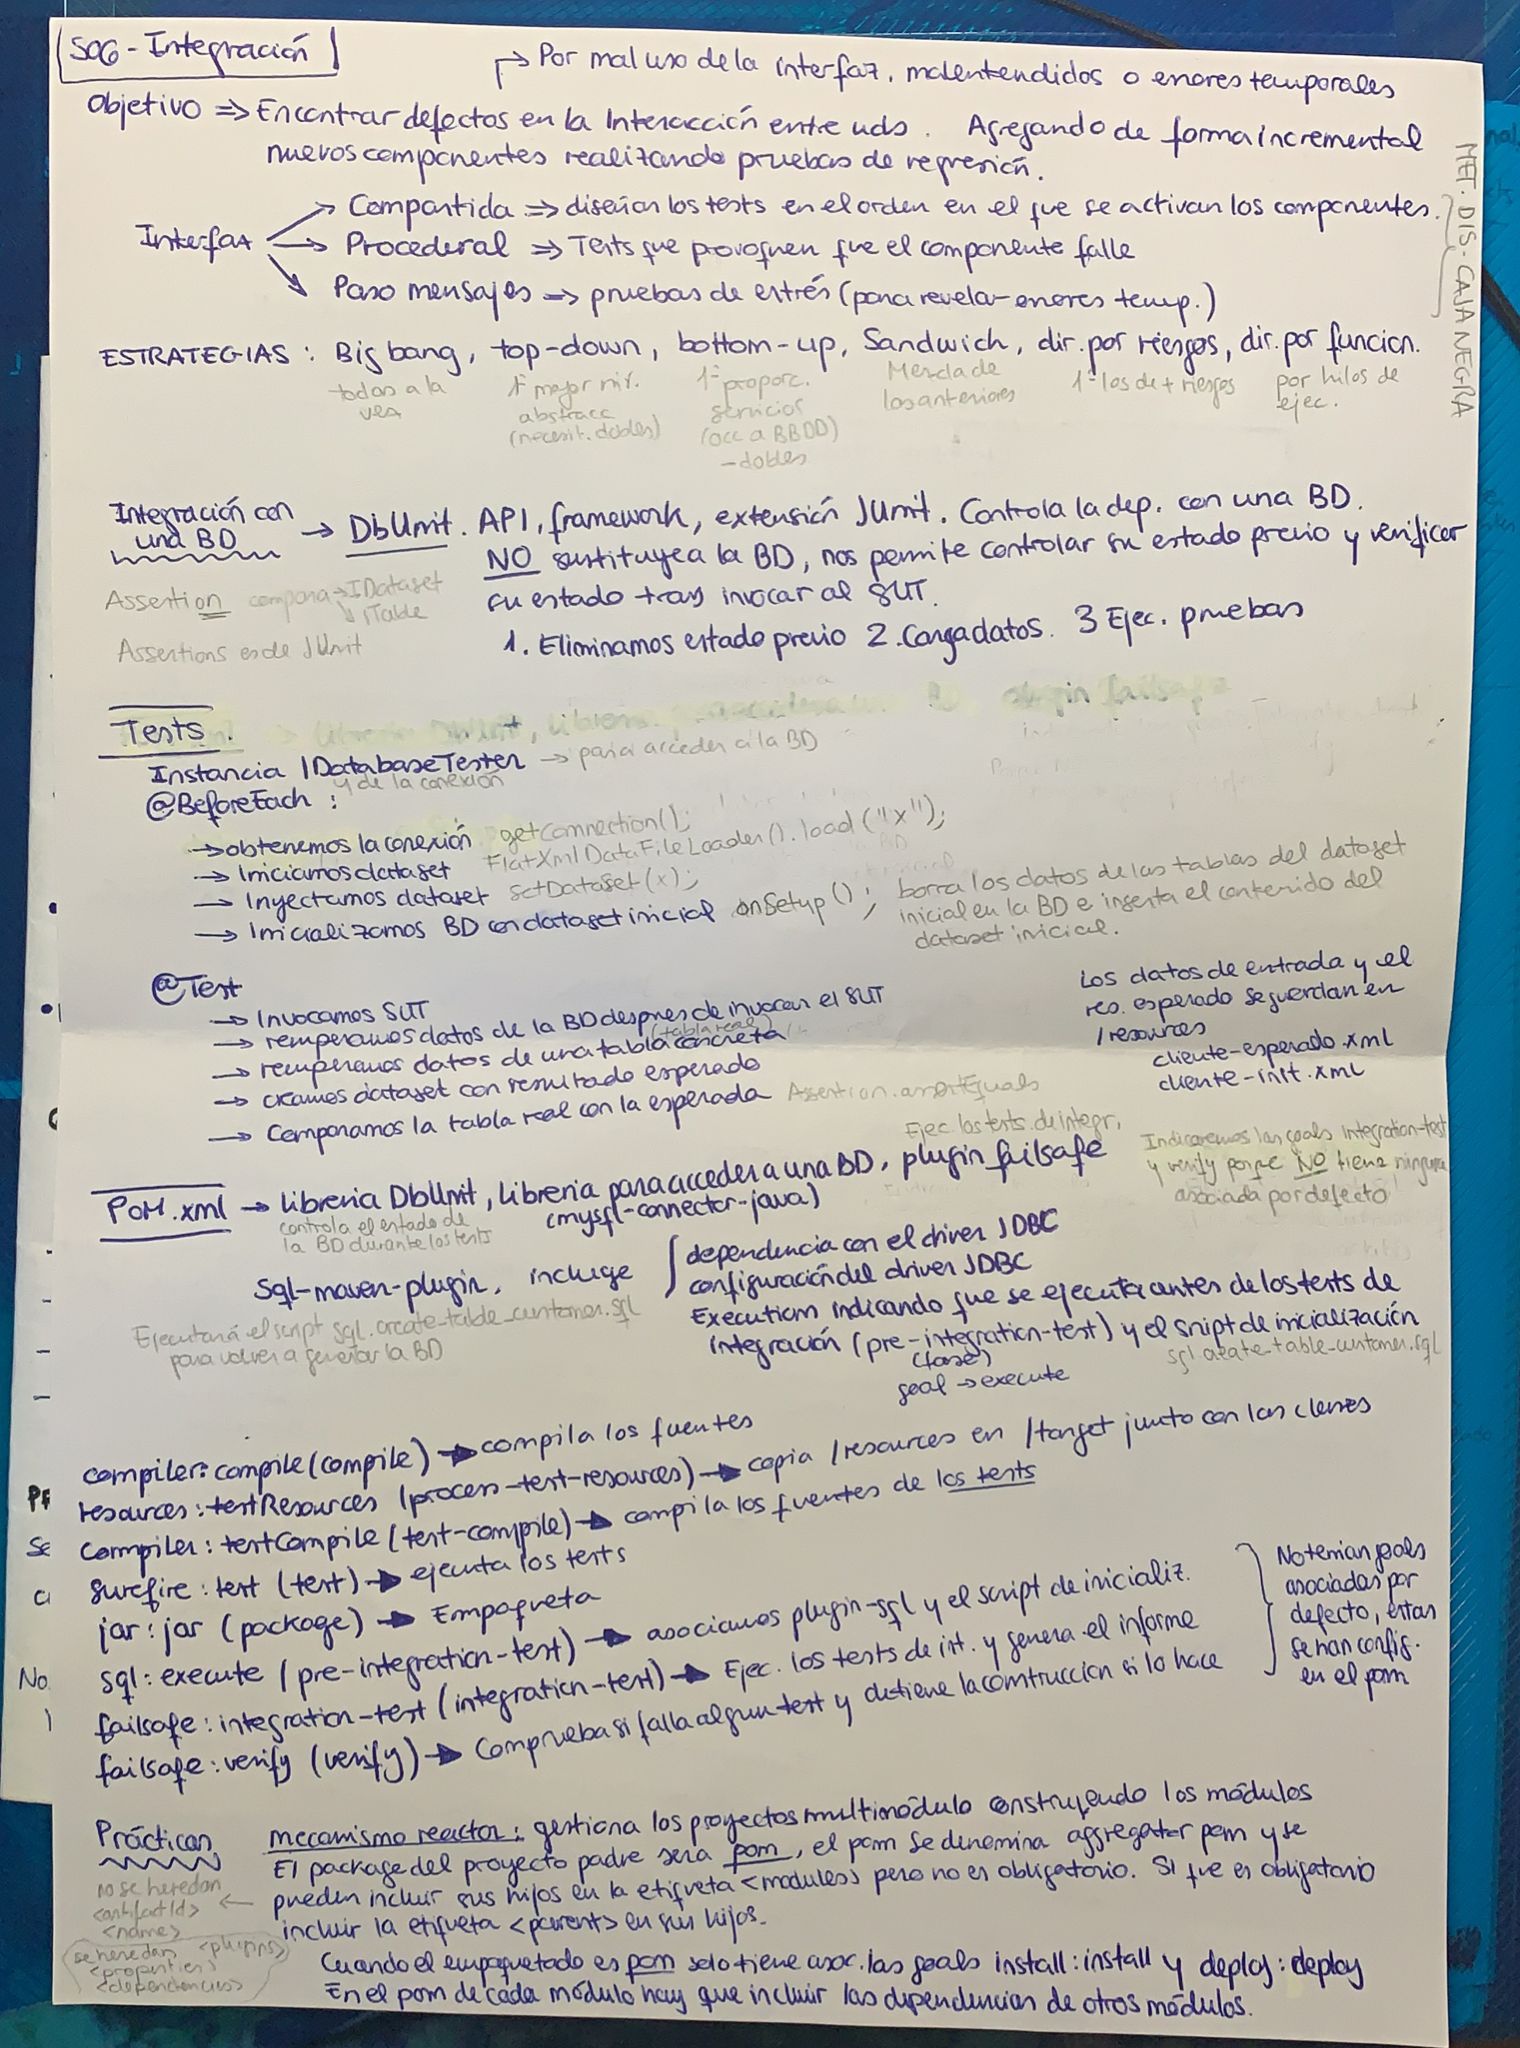 S06 - Integración
→ Por mal uso de la interfaz, malentendidos o errores temporales
Objetivo => Encontrar defectos en la Interacción entre uds. Agregando de forma incremental
nuevos componentes realizando pruebas de regresión.
MET. DIS - CAJA NEGRA
Interfaz
→ Compartida => diseñan los tests en el orden en el que se activan los componentes.
→ Procederal => Tests que provoquen que el componente falle
→ Paso mensajes => pruebas de estrés (para revelar errores temp.)
ESTRATEGIAS: Big bang, top-down, bottom-up, Sandwich, dir. por riesgos, dir. por funcion.
todos a la vez
1º mayor niv. abstracc (necesit. dobles)
1º proporc. servicios (acc a BBDD) - dobles
Mezcla de los anteriores
1º los de + riesgos
por hilos de ejec.
Integración con una BD → DbUnit. API, framework, extensión JUnit. Controla la dep. con una BD.
NO sustituye a la BD, nos permite controlar su estado previo y verificar
su estado tras invocar al SUT.
1. Eliminamos estado previo 2. Carga datos. 3 Ejec. pruebas
Assertion compara → IDataset
↘ ITable
Assertions es de JUnit
Tests
Instancia IDatabaseTester → para acceder a la BD
y de la conexión
@BeforeEach:
→ obtenemos la conexión getConnection();
→ Iniciamos dataset FlatXmlDataFileLoader().load("x");
→ Inyectamos dataset setDataSet(x);
→ Inicializamos BD con dataset inicial onSetup(); borra los datos de las tablas del dataset
inicial en la BD e inserta el contenido del
dataset inicial.
@Test
→ Invocamos SUT
→ recuperamos datos de la BD despues de invocar el SUT
→ recuperamos datos de una tabla concreta (tabla real)
→ creamos dataset con resultado esperado
→ Comparamos la tabla real con la esperada Assertion.assertEquals
Los datos de entrada y el
res. esperado se guardan en
/resources
cliente-esperado.xml
cliente-init.xml
Ejec. los tests de integr.
POM.xml → librería DbUnit, Librería para acceder a una BD, plugin failsafe
(mysql-connector-java)
controla el estado de
la BD durante los tests
Indicaremos las goals integration-test
y verify porque NO tiene ninguna
asociada por defecto
Sql-maven-plugin, incluye
dependencia con el driver JDBC
configuración del driver JDBC
Execution indicando que se ejecuta antes de los tests de
integración (pre-integration-test) y el script de inicialización
(fase)
goal → execute
sql create-table-customer.sql
Ejecutará el script sql.create-table-customer.sql
para volver a generar la BD
compiler:compile (compile) → compila los fuentes
resources:testResources (process-test-resources) → copia /resources en /target junto con las clases
compiler:testCompile (test-compile) → compila los fuentes de los tests
surefire:test (test) → ejecuta los tests
jar:jar (package) → Empaqueta
sql:execute (pre-integration-test) → asociamos plugin-sql y el script de inicializ.
failsafe:integration-test (integration-test) → Ejec. los tests de int. y genera el informe
failsafe:verify (verify) → Comprueba si falla algun test y detiene la construccion si lo hace
No tenian goals
asociadas por
defecto, estas
se han config.
en el pom
Prácticas
mecanismo reactor: gestiona los proyectos multimódulo construyendo los módulos
El package del proyecto padre sera pom, el pom se denomina aggregator pom y se
pueden incluir sus hijos en la etiqueta <modules> pero no es obligatorio. Si que es obligatorio
incluir la etiqueta <parent> en sus hijos.
no se heredan
<artifactId>
<name>
se heredan <plugins>
<properties>
<dependencies>
Cuando el empaquetado es pom solo tiene asoc. las goals install:install y deploy:deploy
En el pom de cada módulo hay que incluir las dependencias de otros módulos.